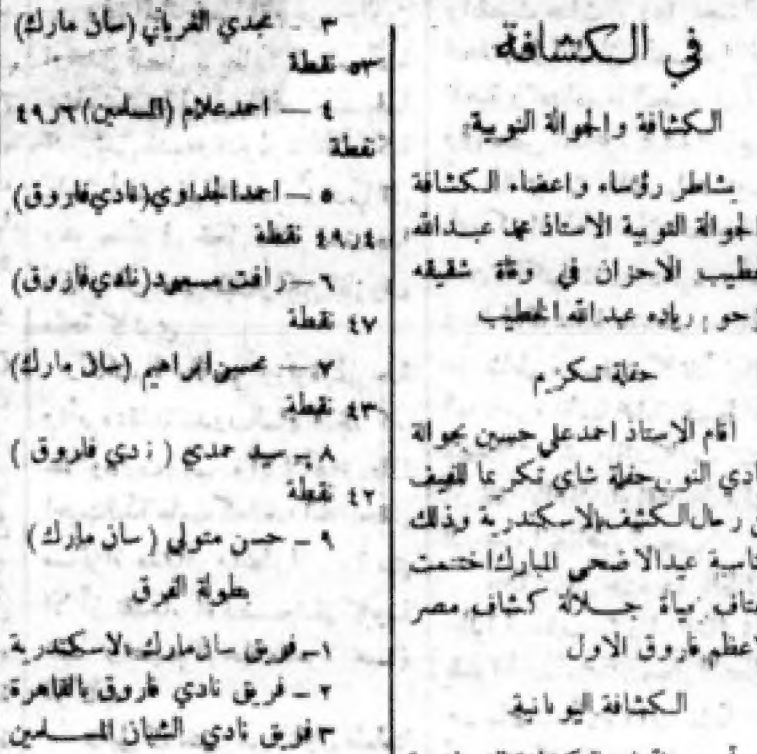 في الكشافة
الكشافة والجوالة النوبية
يشاطر رؤساء واعضاء الكشافة
الجوالة النوبية الاستاذ محمد عبدالله
الاحزان في وفاة شقيقه
عبدالله الخطيب
حفلة تكريم
اقام الاستاذ احمد علي حسين بجوالة
حفلة شاي تكريما للفيف
الكشف الاسكندرية وذلك
عيد الاضحى المبارك اختتمت
جلالة كشاف مصر
فاروق الاول
الكشافة اليونانية
٣ — مجدي الفرياني (سان مارك)
٥٣ نقطة
٤ — احمد علام (المسلمين) ٤٩ر٦
نقطة
٥ — احمد الجداوي (نادي فاروق)
٤٩ر٤ نقطة
٦ — رافت مسعود (نادي فاروق)
٤٧ نقطة
٧ — محسن ابراهيم (سان مارك)
٤٣ نقطة
٨ — سيد حمدي (نادي فاروق)
٤٢ نقطة
٩ — حسن متولي (سان مارك)
بطولة الفرق
١ — فريق سان مارك بالاسكندرية
٢ — فريق نادي فاروق بالقاهرة
٣ فريق نادي الشبان المسلمين